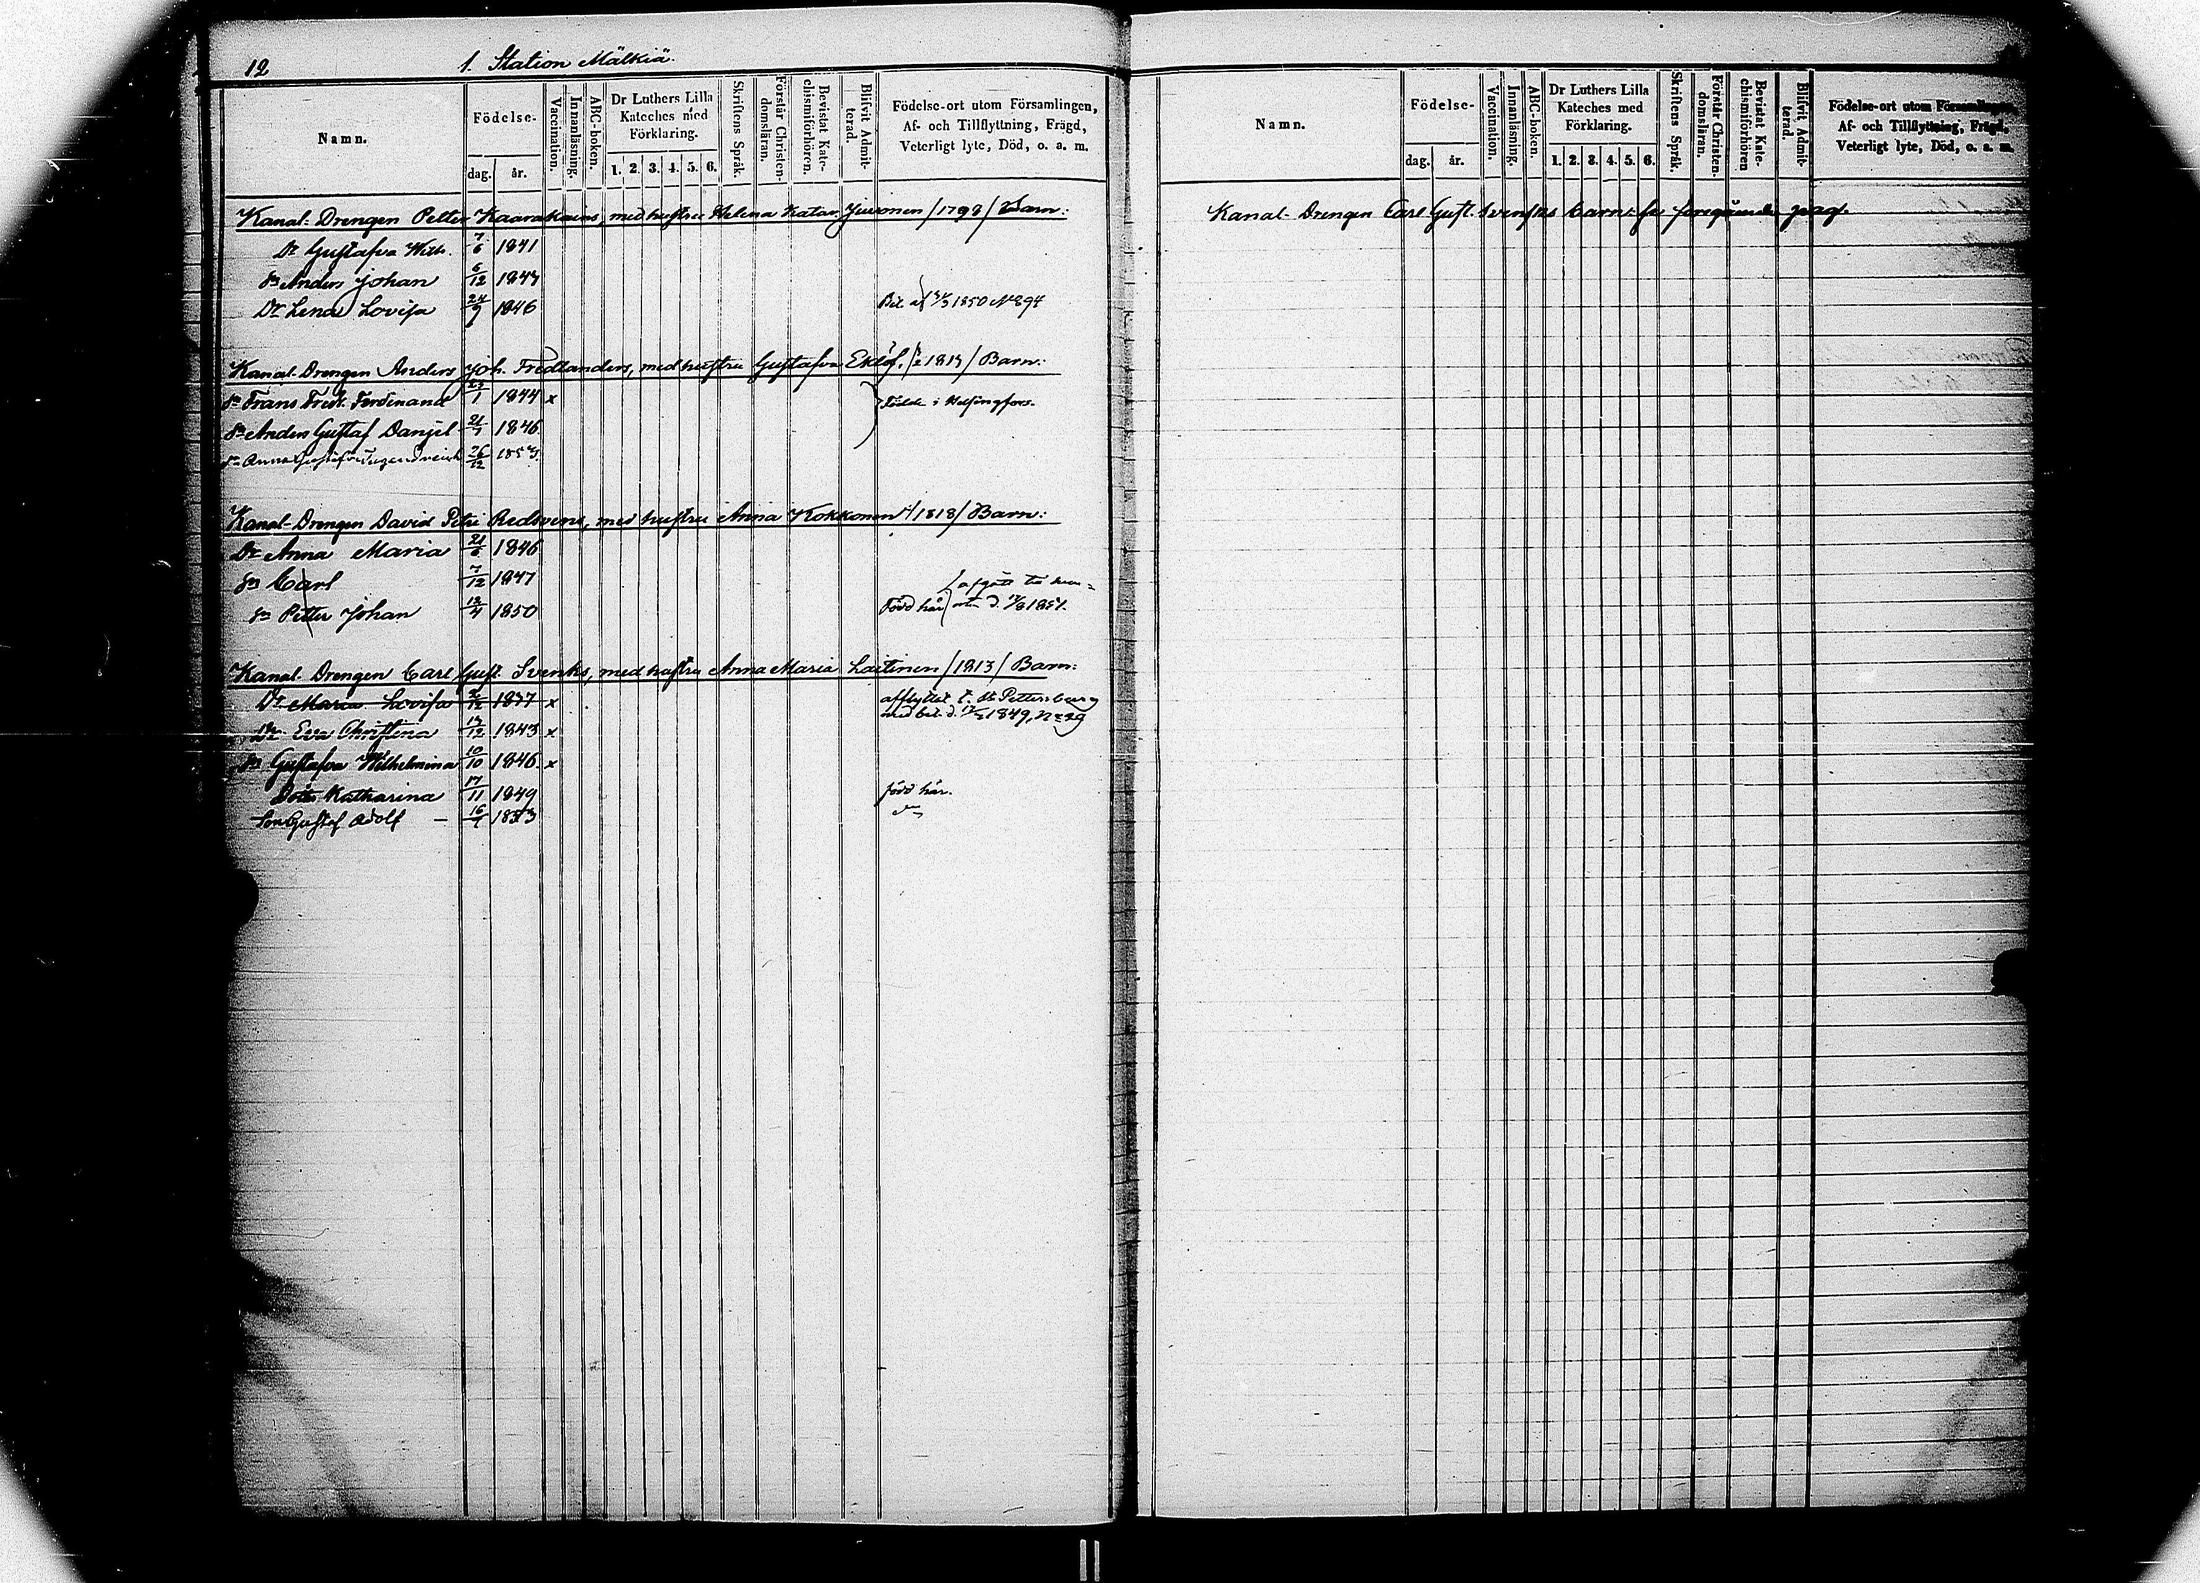 12
1. Station Mälkiä.
Namn.
Födelse-
dag. år.
Vaccination.
Innanläsning.
ABC-boken.
Dr Luthers Lilla
Kateches med
Förklaring.
1. 2. 3. 4. 5. 6.
Skriftens Språk.
Förstår Christen-
domsläran.
Bevistat Kate-
chismiförhören.
Blifvit Admit-
terad.
Födelse-ort utom Församlingen,
Af- och Tillflyttning, Frägd,
Veterligt lyte, Död, o. a. m.
Kanal-Drengen Petter Kaarakains, med hustru Helena Katar. Juvonen /1798/ Barn:
Dr Gustafva Wilh. 7/6 1841
Sn Anders Johan 6/12 1844
Dr Lena Lovisa 24/9 1846 Bet af 1850 No 894
Kanal-Drengen Anders Joh. Fredlanders, med hustru Gustafva Eklöf, 1819/ Barn:
Sn Frans Fredr. Ferdinand 23/1 1844 x Födde i Helsingfors.
Sn Anders Gustaf Daniel 21/7 1846
Anna 26/12 185
Kanal-Drengen David Petri Redsvens, med hustru Anna Kokkonen /1818/ Barn:
Dr Anna Maria 21/6 1846
Sn Carl 7/12 1847 afgått till hem-
Sn Petter Johan 12/4 1850 Född här orten d. 1851.
Kanal-Drengen Carl Gust. Svenks, med hustru Anna Maria Laitinen /1813/ Barn:
Dr Maria Lovisa 1837 x afflyttat t. St. Petersburg
med bet. d. 1849, No 29
Dr Eva Christina 14/12 1843 x
Dr Gustafva Wilhelmina 10/10 1846 x
Dotter Katharina 17/11 1849 född här.
Son Gustaf Adolf — 16/7 1853 d:o
Namn.
Födelse-
dag. år.
Vaccination.
Innanläsning.
ABC-boken.
Dr Luthers Lilla
Kateches med
Förklaring.
1. 2. 3. 4. 5. 6.
Skriftens Språk.
Förstår Christen-
domsläran.
Bevistat Kate-
chismiförhören
Blifvit Admit-
terad.
Födelse-ort utom Församlingen,
Af- och Tillflyttning, Frägd,
Veterligt lyte, Död, o. a. m.
Kanal-Drengen Carl Gust. Svenskes barn: se föregående pag.